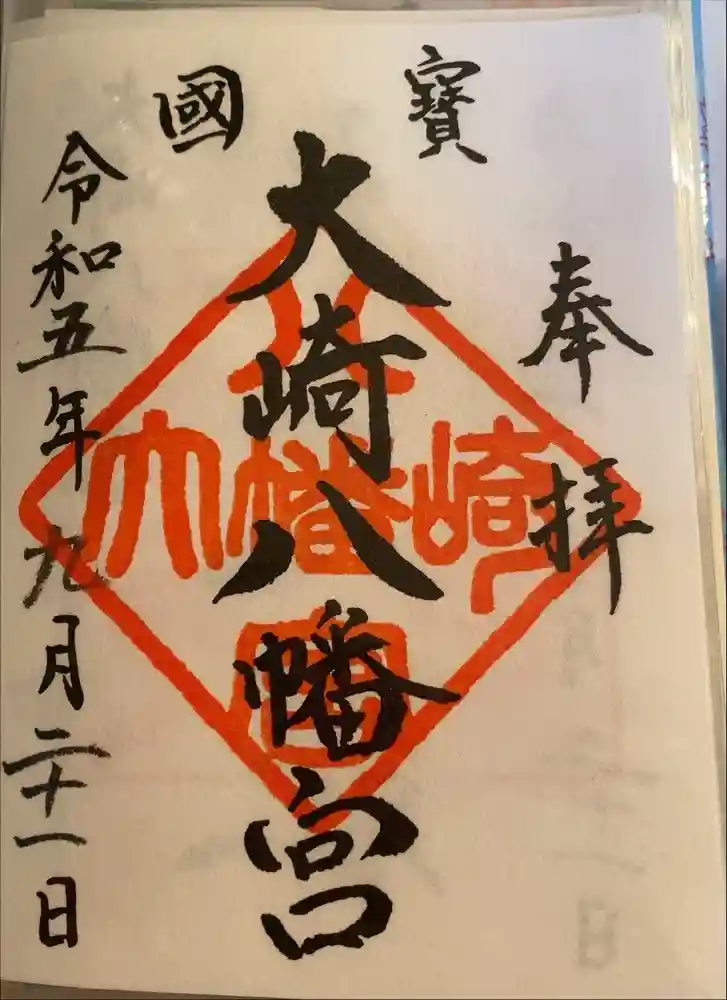 奉拝
寶國
大崎八幡宮
令和五年九月二十一日
八
大幡崎